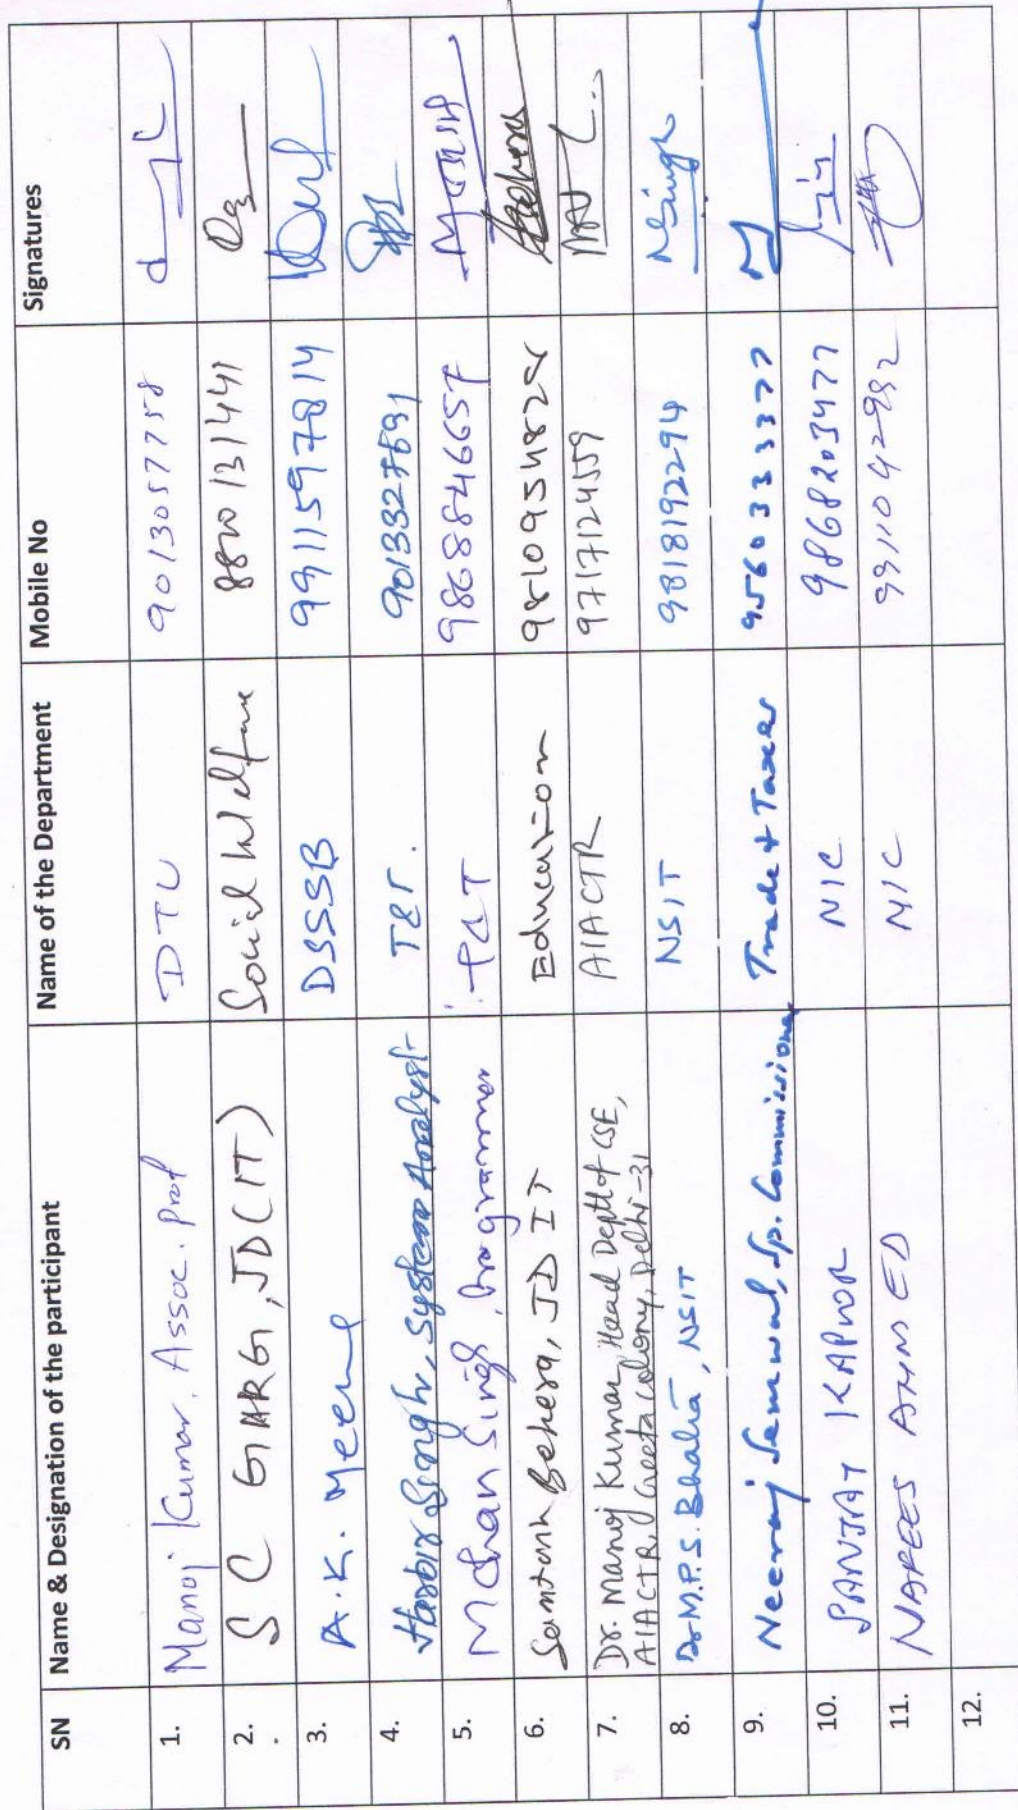 SN Name & Designation of the participant Name of the Department Mobile No Signatures
1. Manoj Kumar, Assoc. Prof DTU 9013057758
2. S C GARG, JD(IT) Social Welfare 8800131441
3. A.K. Meena DSSSB 9911597814
4. Singh, System Analyst T&T. 9013327691
5. Mohan Singh, Programmer T&T 9868846657
6. Santanu Behera, JD IT Education 9810954825 Behera
7. Dr. Manoj Kumar, Head Deptt of CSE,
AIACTR, Geeta Colony, Delhi-31 AIACTR 9717124559
8. Dr M.P.S. Bhatia, NSIT NSIT 9818192294 Singh
9. Neeraj Semwal, Sp. Commissioner Trade & Taxes 9560333377
10. SANJAY KAPOOR NIC 9868203477
11. NAFEES AHMED NIC 9911042992
12.